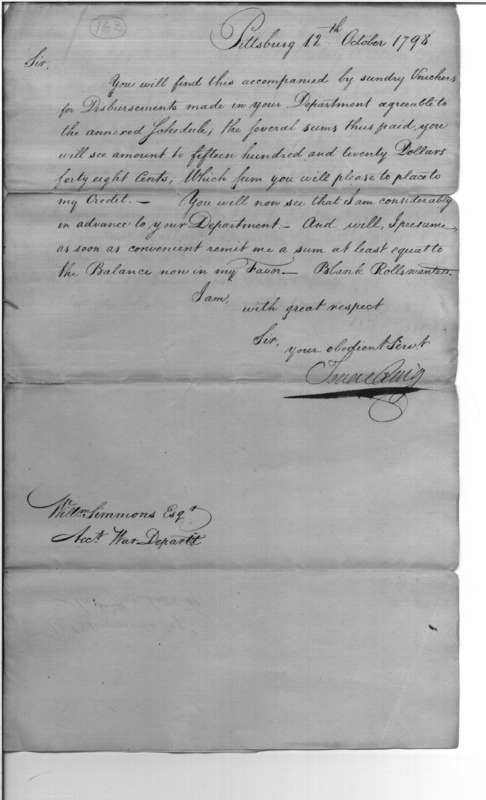 163
Pittsburg 12th October 1798
Sir,
You will find this accompanied by sundry Vouchers
for Disbursements made in your Department agreeable to
the annexed Schedule; the several sums thus paid, you
will see amount to fifteen hundred and twenty Dollars
forty eight Cents; Which sum you will please to place to
my Credit. — You will now see that I am considerably
in advance to your Department — And will, I presume,
as soon as convenient remit me a sum at least equal to
the Balance now in my Favor — Blank Rolls wanted.
I am,
with great respect
Sir,
your obedient Servt
Isaac Craig
Willm Simmons Esqr
Acct. War Departt